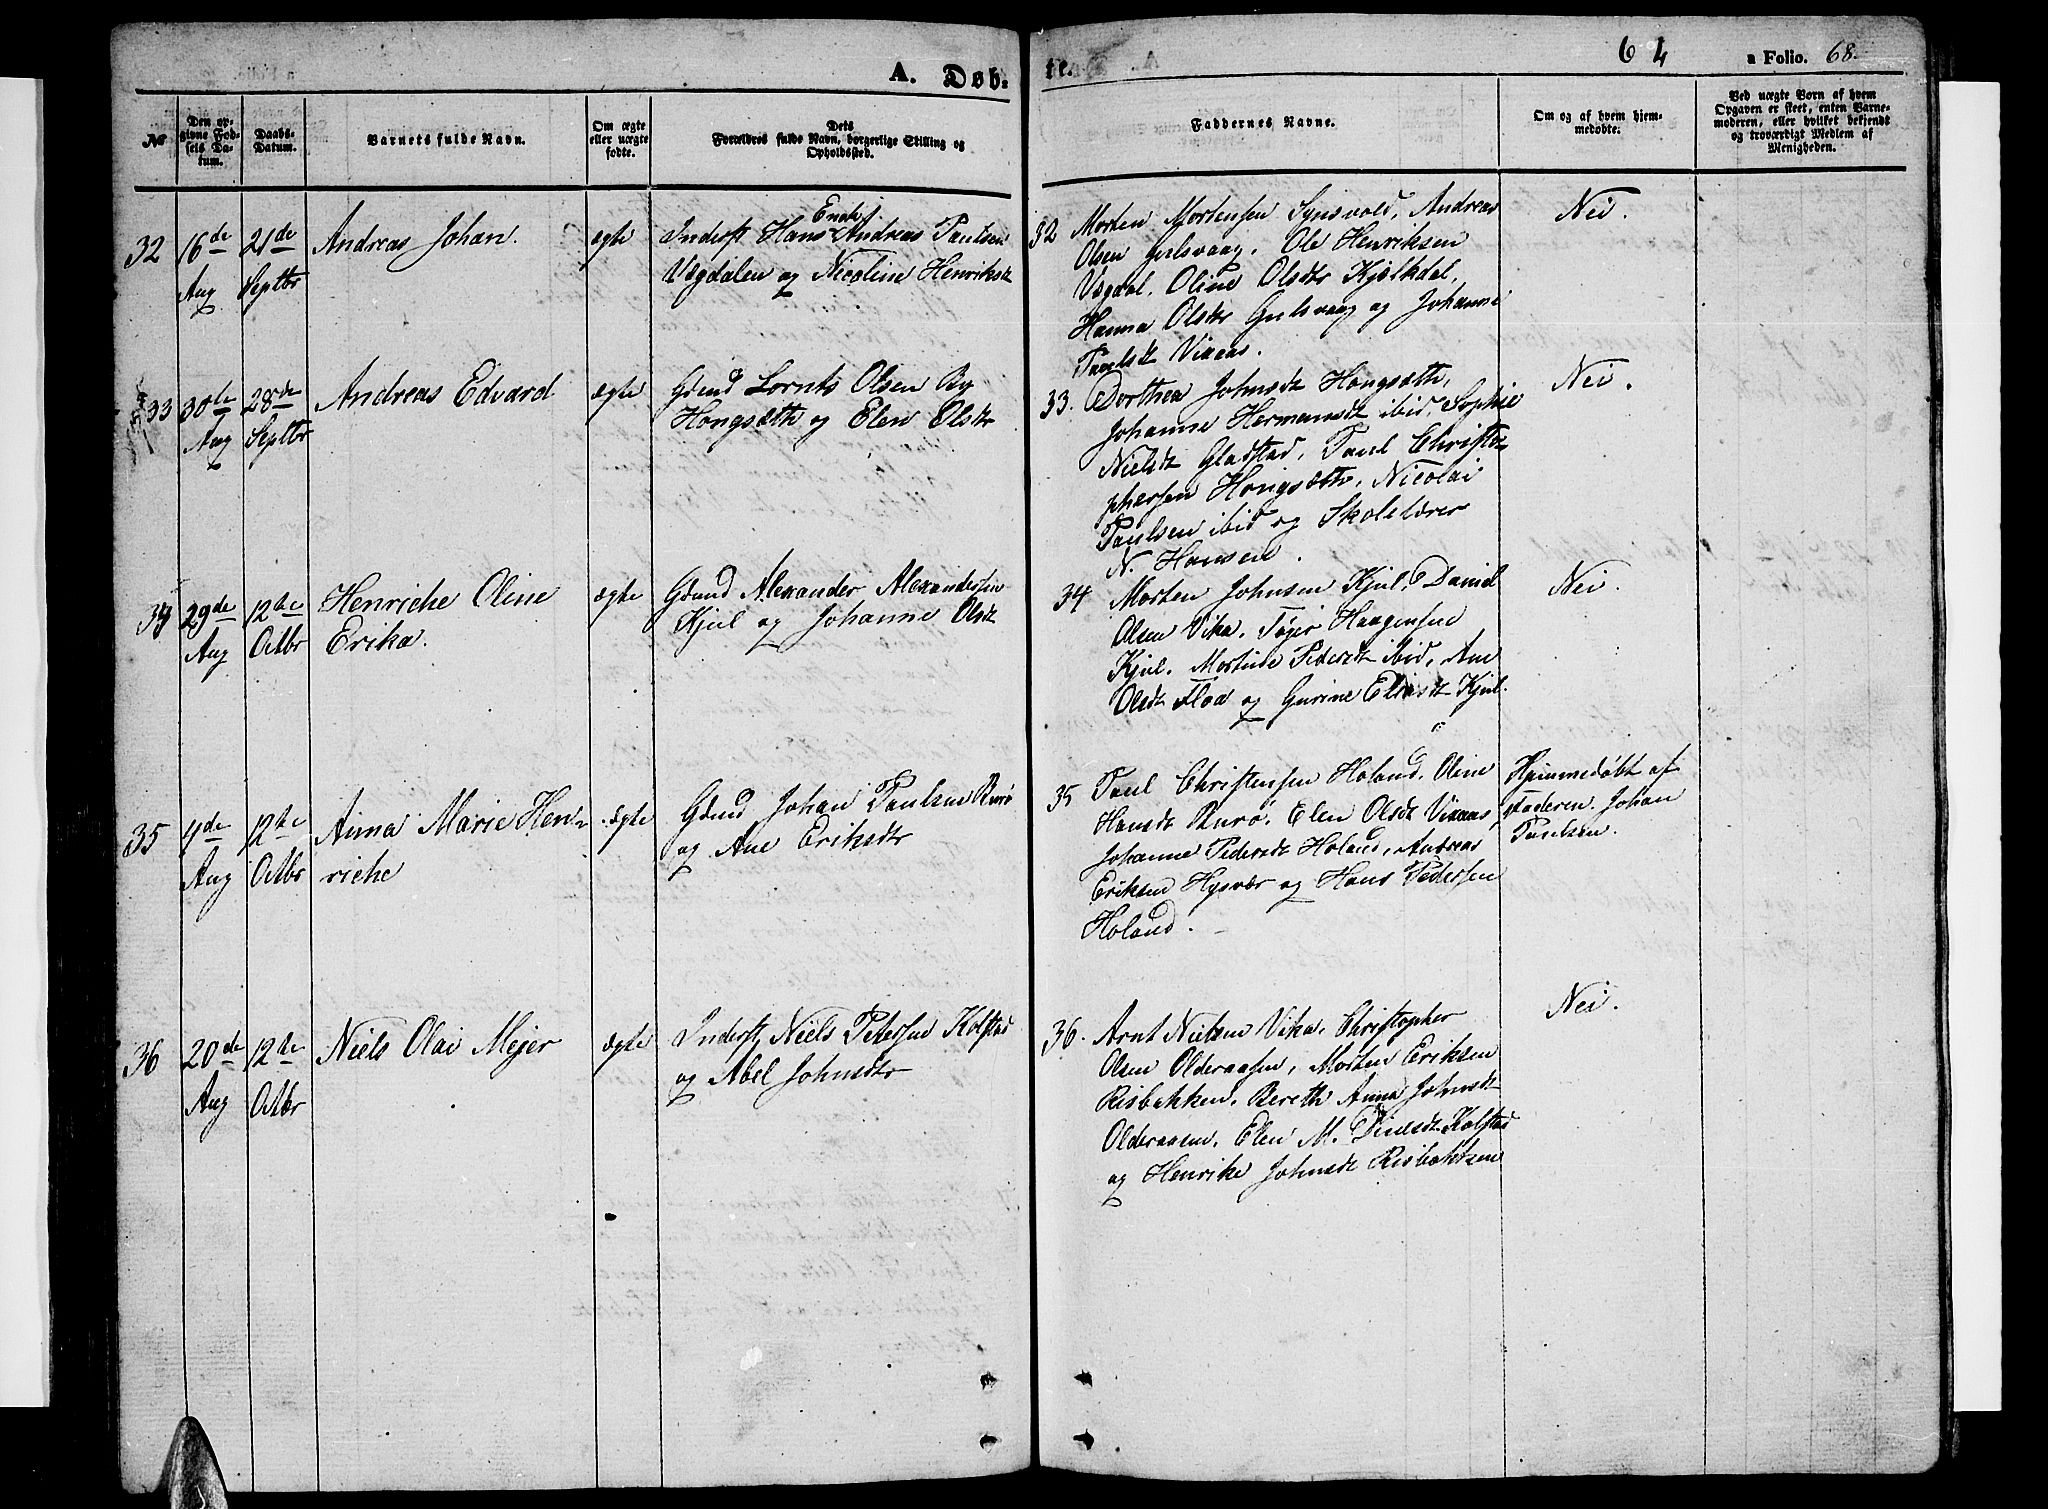 64
a Folio. 68.
A. Døb-
te.
No
Den op-
givne Fød-
sels Da-
tum.
Daabs-
Datum.
Barnets fulde Navn.
Om ægte
eller uægte
fødte.
Dets
Forældres fulde Navn, borgerlige Stilling og
Opholdssted.
Faddernes Navne.
Om og af hvem hjem-
medøbte.
Ved uægte Born af hvem
Opgaven er skeet, enten Barne-
moderen, eller hvilket bekjendt
og troværdigt Medlem af
Menigheden.
32
16de
Aug
21de
Septbr
Andreas Johan.
ægte
Enok
Inderst Hans Andreas Paulsen
Vægdalen og Nicoline Henriksdt
32 Morten Mortensen Synsvold, Andreas
Olsen Gulsvaag, Ole Henriksen
Vægdal, Oline Olsdtr Kjølkdal,
Hanna Olsdtr Gulsvaag og Johanne
Paulsdt Vixaas.
Nei.
33
30te
Aug
28de
Septbr
Andreas Edvard
ægte
Gdmd Lornts Olsen By
Hongsæth og Elen Olsdtr
33. Dorthea Johnsdt Hongsæth,
Johanne Hermansdt ibid, Sophie
Nielsdt Gladstad, Paul Christo-
phersen Hongsæth, Nicolai
Paulsen ibid og Skolelærer
N. Hansen.
Nei.
34
29de
Aug
12te
Octbr
Henriche Oline
Erika.
ægte
Gdmd Alexander Alexandersen
Kjul og Johanne Olsdt
34 Morten Johnsen Kjul, Daniel
Olsen Vika, Tøger Haagensen
Kjul, Mortine Pedersdt ibid, Ane
Olsdt Floa og Gurine Eliasdt Kjul.
Nei.
35
4de
Aug
12te
Octbr
Anna Marie Hen-
riche
ægte
Gdmd Johan Paulsen Burø
og Ane Eriksdtr
35 Paul Christensen Holand, Oline
Hansdt Burø, Elen Olsdt Vixaas,
Johanne Pedersdt Holand, Andreas
Eriksen Hysvær og Hans Pedersen
Holand.
Hjemmedøbt af
Faderen Johan
Paulsen.
36
20de
Aug
12te
Octbr
Niels Olai Mejer
ægte
Inderst Niels Petersen Kolstad
og Abel Johnsdtr
36. Arnt Nielsen Vika, Christopher
Olsen Olderaasen, Morten Eriksen
Risbakken, Bereth Anna Johnsdt
Olderaasen, Elen M. Kolstad
og Henrike Johnsdt Risbakken
Nei.